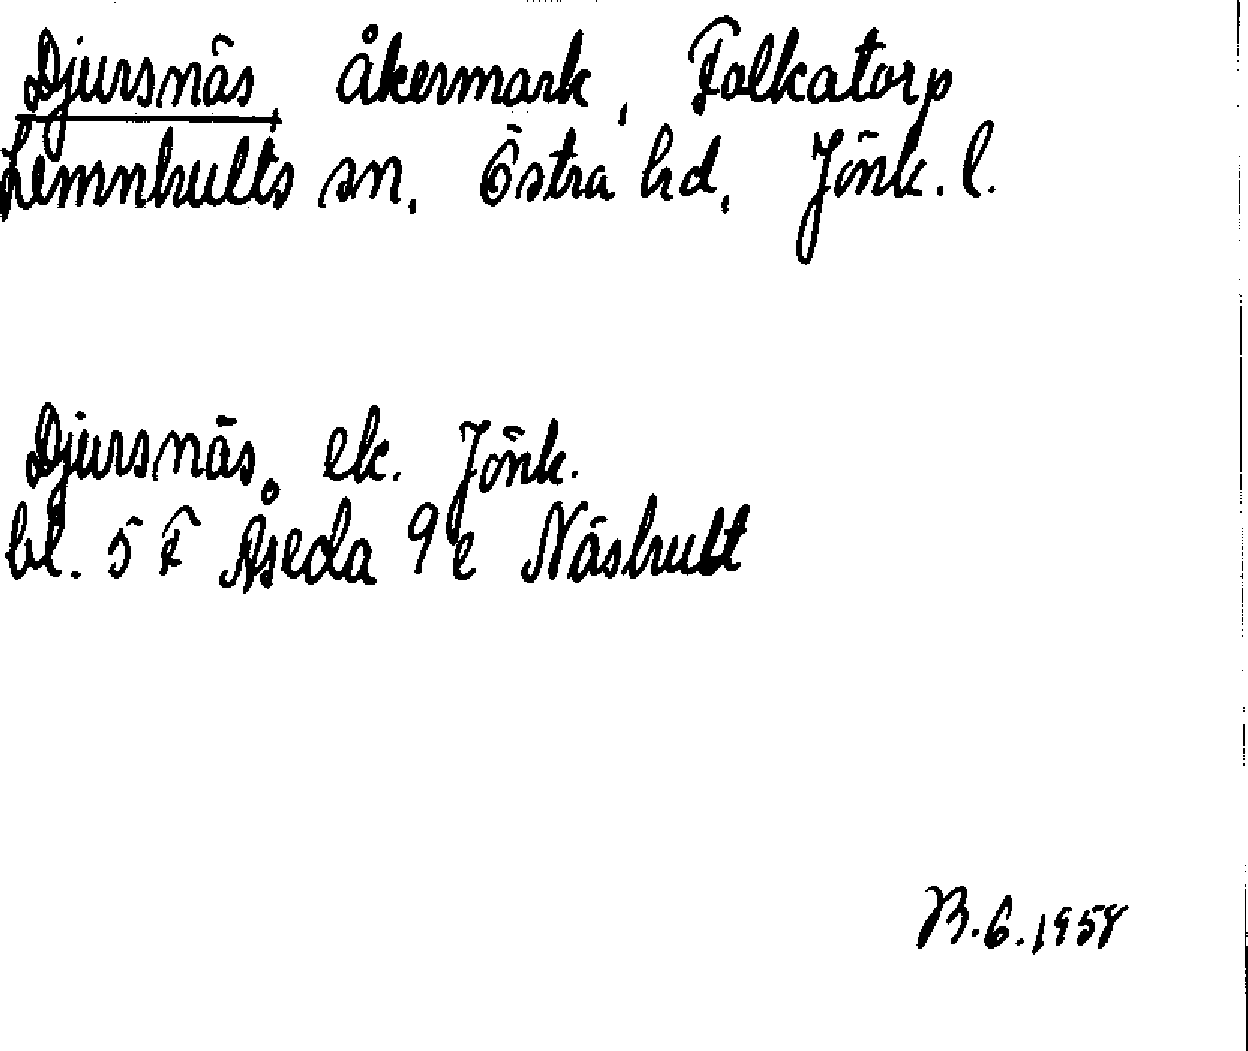 Djursnäs, åkermark, Falkatorp
Lemnhults sn, Östra hd, Jönk. l.
Djursnäs, ek. Jönk.
bl. 5 F Åseda 9 e Näshult
B.6.1958